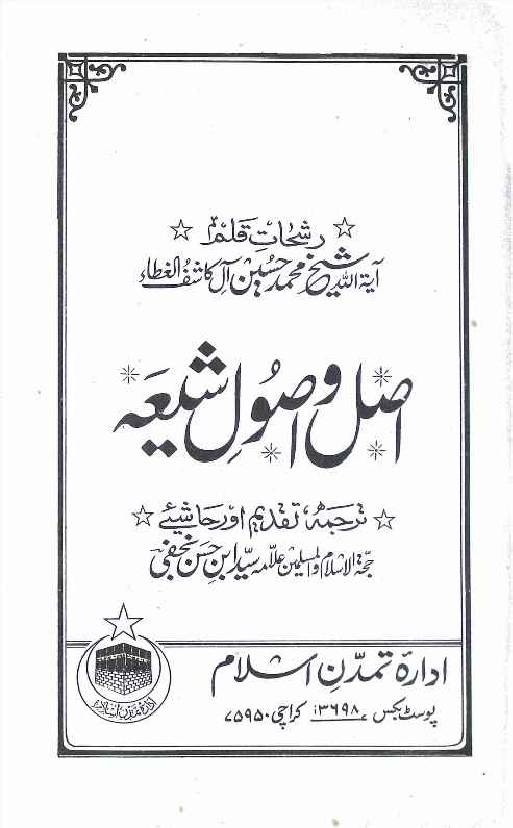 رشحاتِ قلم
آیۃ اللہ شیخ محمد حسین آل کاشف الغطاء
اصل و اصولِ شیعہ
ترجمہ، تقدیم اور حاشیئے
حجۃ الاسلام والمسلمین علامہ سید ابن حسن نجفی
ادارۂ تمدنِ اسلام
پوسٹ بکس ۱۳۶۹۸ کراچی ۷۵۹۵۰
ادارۂ تمدن اسلام